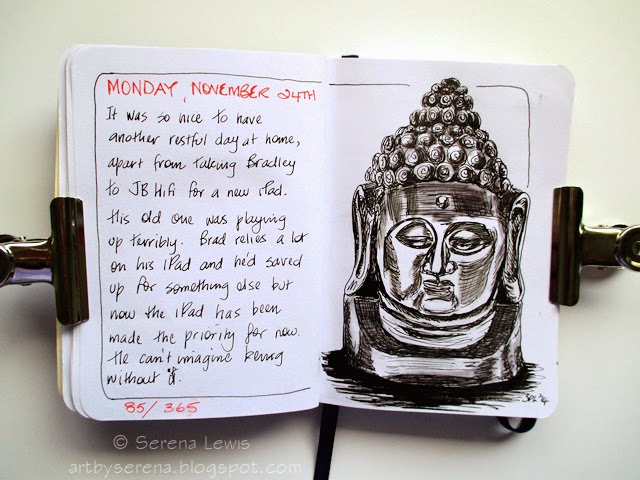 MONDAY, NOVEMBER 24TH
It was so nice to have
another restful day at home,
apart from taking Bradley
to JB Hifi for a new iPad.
His old one was playing
up terribly. Brad relies a lot
on his iPad and he'd saved
up for something else but
now the iPad has been
made the priority for now.
He can't imagine being
without it.
85/365
SRL '14
© Serena Lewis
artbyserena.blogspot.com